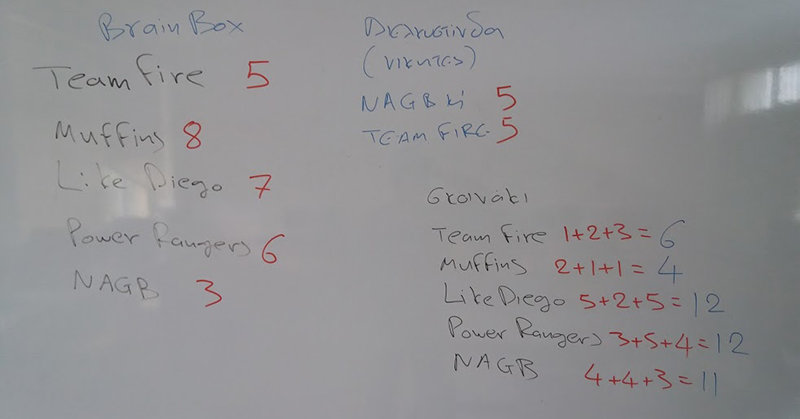 Brain Box
Team fire 5
Muffins 8
Like Diego 7
Power Rangers 6
NAGB 3
Διελκυστίνδα
(νικητές)
NAGB κι 5
TEAM FIRE 5
Σκοινάκι
Team fire 1+2+3=6
Muffins 2+1+1=4
Like Diego 5+2+5=12
Power Rangers 3+5+4=12
NAGB 4+4+3=11